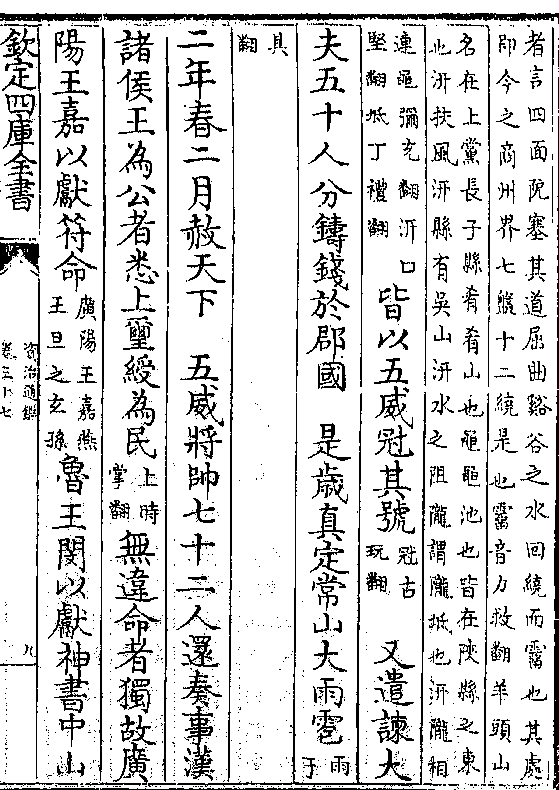 者言四面阨塞其道屈曲谿谷之水回繞而霤也其處
即今之商州界七盤十二繞是也霤音力救翻羊頭山
名在上黨長子縣肴肴山也黽黽池也皆在陝縣之東
也汧扶風汧縣有吳山汧水之阻隴謂隴坻也汧隴相
連黽彌兖翻汧口
堅翻坻丁禮翻
皆以五威冠其號
冠古
玩翻
又遣諫大
夫五十人分鑄錢於郡國 是歲真定常山大雨雹
雨
于
具
翻
二年春二月赦天下 五威將帥七十二人還奏事漢
諸侯王為公者悉上璽綬為民
上時
掌翻
無違命者獨故廣
陽王嘉以獻符命
廣陽王嘉燕
王旦之玄孫
魯王閔以獻神書中山
欽定四庫全書
資治通鑑
卷三十七
九